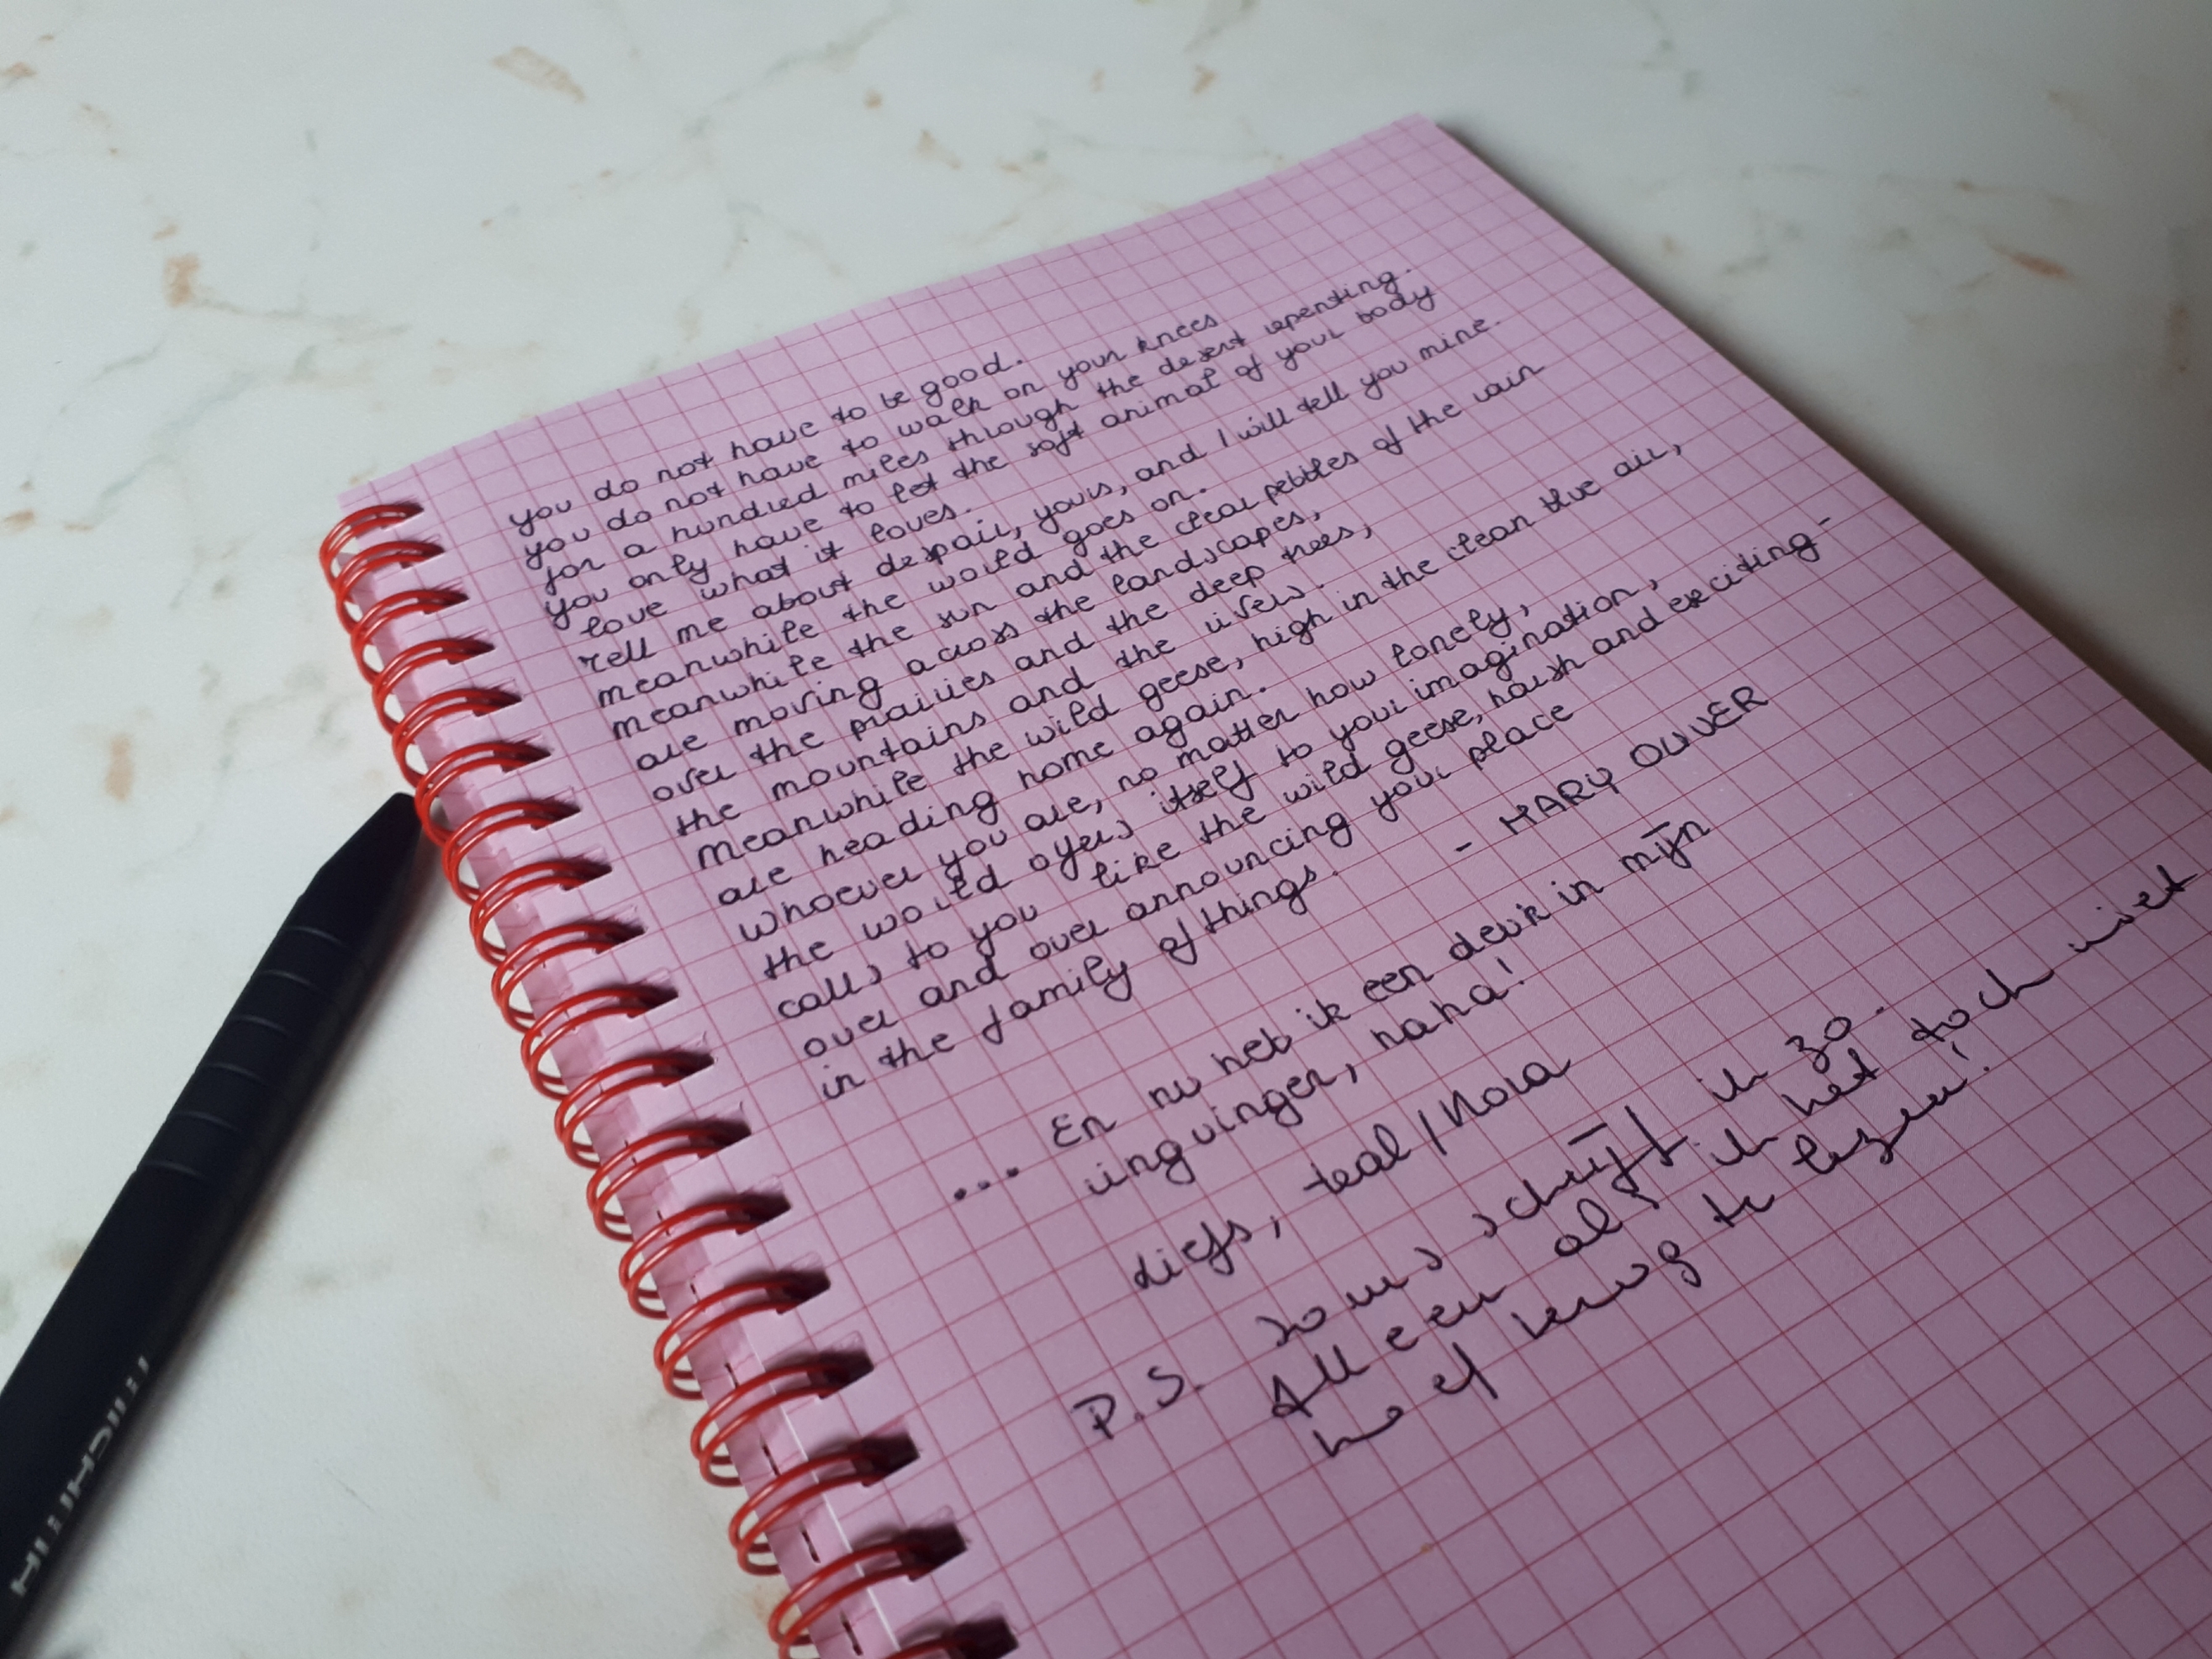 you do not have to be good.
you do not have to walk on your knees
for a hundred miles through the desert repenting.
you only have to let the soft animal of your body
love what it loves.
Tell me about despair, yours, and I will tell you mine.
meanwhile the world goes on.
meanwhile the sun and the clear pebbles of the rain
are moving across the landscapes,
over the prairies and the deep trees,
the mountains and the rivers.
Meanwhile the wild geese, high in the clean blue air,
are heading home again.
Whoever you are, no matter how lonely,
the world offers itself to your imagination,
calls to you like the wild geese, harsh and exciting-
over and over announcing your place
in the family of things.
- MARY OLIVER
... En nu heb ik een deuk in mijn
ringvinger, haha!
Liefs, teal/Nora
P.S. Soms schrijf ik zo.
Alleen als ik het toch niet
hoef terug te lezen!